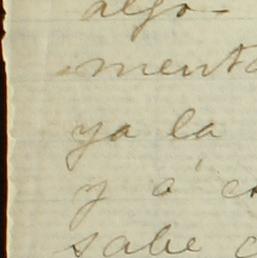 algo
menta
ya la
y á
sabe